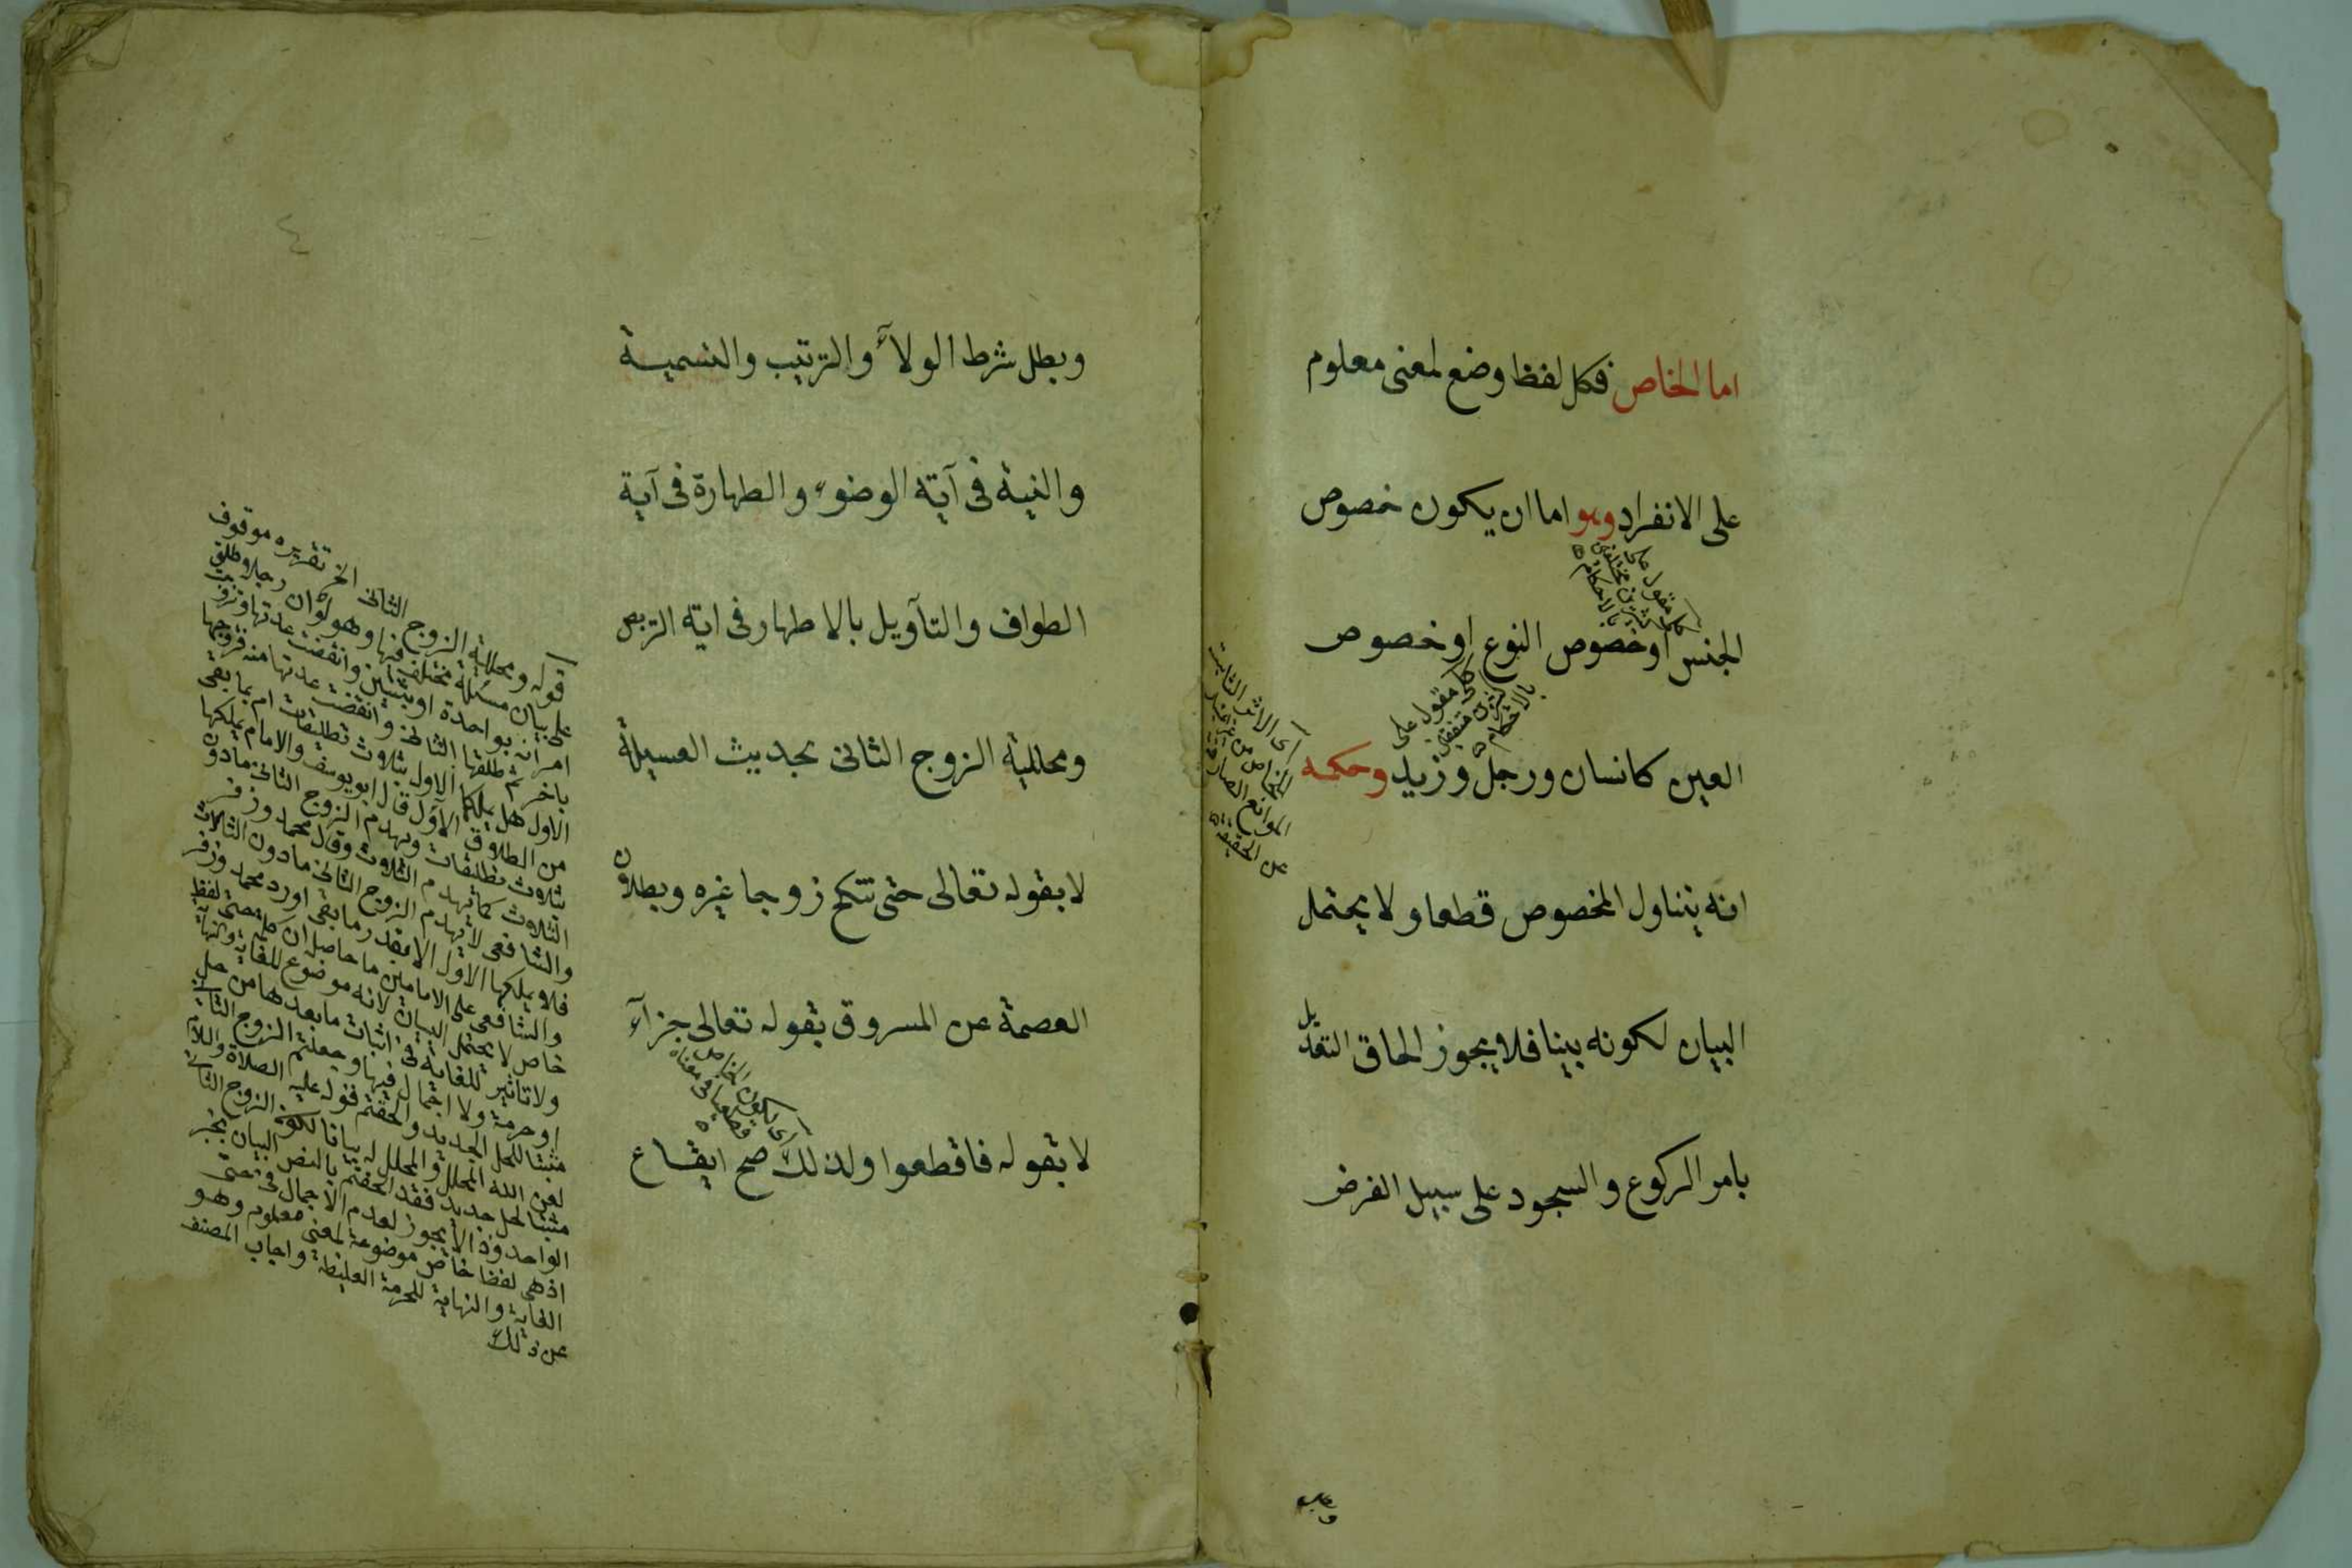 اما الخاص فكل لفظ وضع لمعنى معلوم
على الانفراد وهو اما ان يكون خصوص
كل مقول على
كثيرين مختلفين
بالاحكام
الجنس او خصوص النوع او خصوص
كل مقول على
كثيرين متفقين
بالاحكام
العين كانسان ورجل وزيد وحكمه
اى الاثر الثابت
للخاص من غير
الموانع الصارفة
عن الحقيقة
انه يتناول المخصوص قطعا ولا يحتمل
البيان لكونه بينا فلا يجوز الحاق التعديل
بامر الركوع والسجود على سبيل الفرض
وبطل
وبطل شرط الولآء والترتيب والتسمية
والنية فى آية الوضوء والطهارة فى آية
الطواف والتآويل بالاطهار فى اية التربص
ومحللية الزوج الثانى بحديث العسيلة
لا بقوله تعالى حتى تنكح زوجا غيره وبطلان
العصمة عن المسروق بقوله تعالى جزآء
اى لكون الخاص
قطعيا فى معناه
لا بقوله فاقطعوا ولذلك صح ايقاع
٤
قوله ومحللية الزوج الثانى الخ تقريره موقوف
على بيان مسئلة مختلفة فيها وهو لو ان رجلا طلق
امرأته بواحدة او بثنتين وانقضت عدتها وتزوجت
باخر ثم طلقها الثانى وانقضت عدتها منه فتزوجها
الاول هل يملك الاول بثلاث تطليقات ام بما بقى
من الطلاق قال ابو يوسف والامام يملكها
ثلاث تطليقات ويهدم الزوج الثانى ما دون
الثلاث كما يهدم الثلاث وقال محمد وزفر
والشافعى لا يهدم الزوج الثانى ما دون الثلاث
فلا يملكها الاول الا بقدر ما بقى اورد محمد وزفر
والشافعى على الامامين ما حاصله ان كلمة حتى لفظ
خاص لا يحتمل البيان لانه موضوع للغاية والنهاية
ولا تاثير للغاية فى اثبات ما بعدها من حل
او حرمة ولا اجمال فيها وجعلتم الزوج الثانى
مثبتا للحل الجديد والحقتم قوله عليه الصلاة والسلام
لعن الله المحلل والمحلل له بيانا لكون الزوج الثانى
مثبتا لحل جديد فقد الحقتم بالنص البيان بخبر
الواحد وذا لا يجوز لعدم الاجمال فى حتى
اذ هى لفظ خاص موضوعة لمعنى معلوم وهو
الغاية والنهاية للحرمة الغليظة واجاب المصنف
عن ذلك